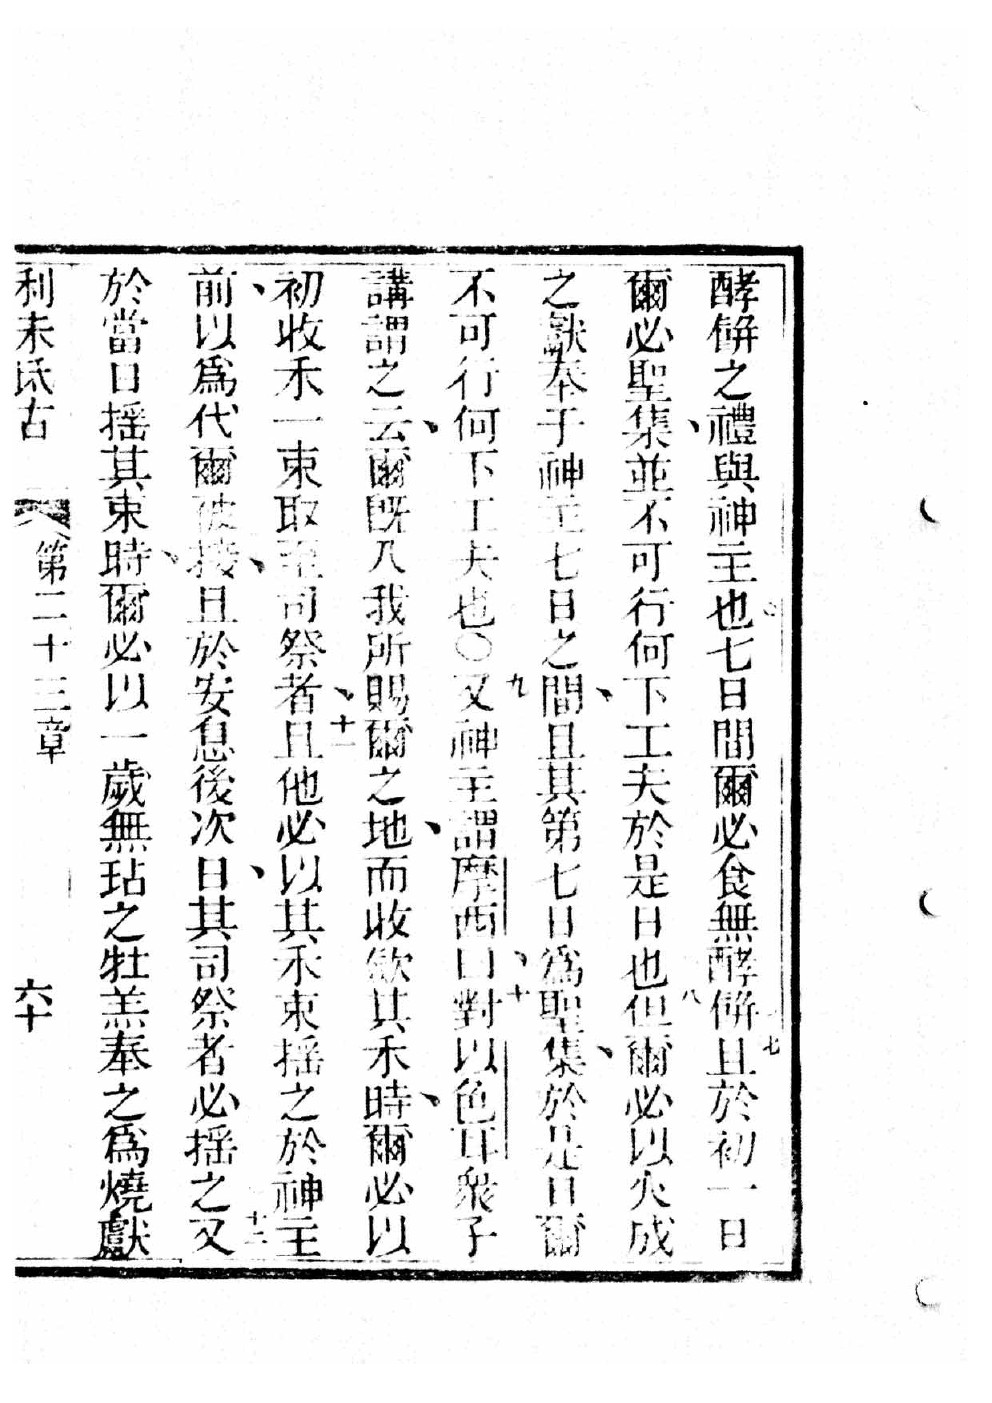 酵餅之禮與神主也七日間爾必食無酵餅且於初一日
爾必聖集並不可行何下工夫於是日也但爾必以火成
之獻奉于神主七日之間且其第七日為聖集於是日爾
不可行何下工夫也○又神主謂摩西曰對以色耳衆子
講謂之云爾既入我所賜爾之地而收歛其禾時爾必以
初收禾一束取至司祭者且他必以其禾束揺之於神主
前以爲代爾被接且於安息後次日其司祭者必揺之又
於當日揺其束時爾必以一歲無玷之牡羔奉之爲燒獻
利未氏古 第二十三章 六十
七
八
九
十
十一
十二